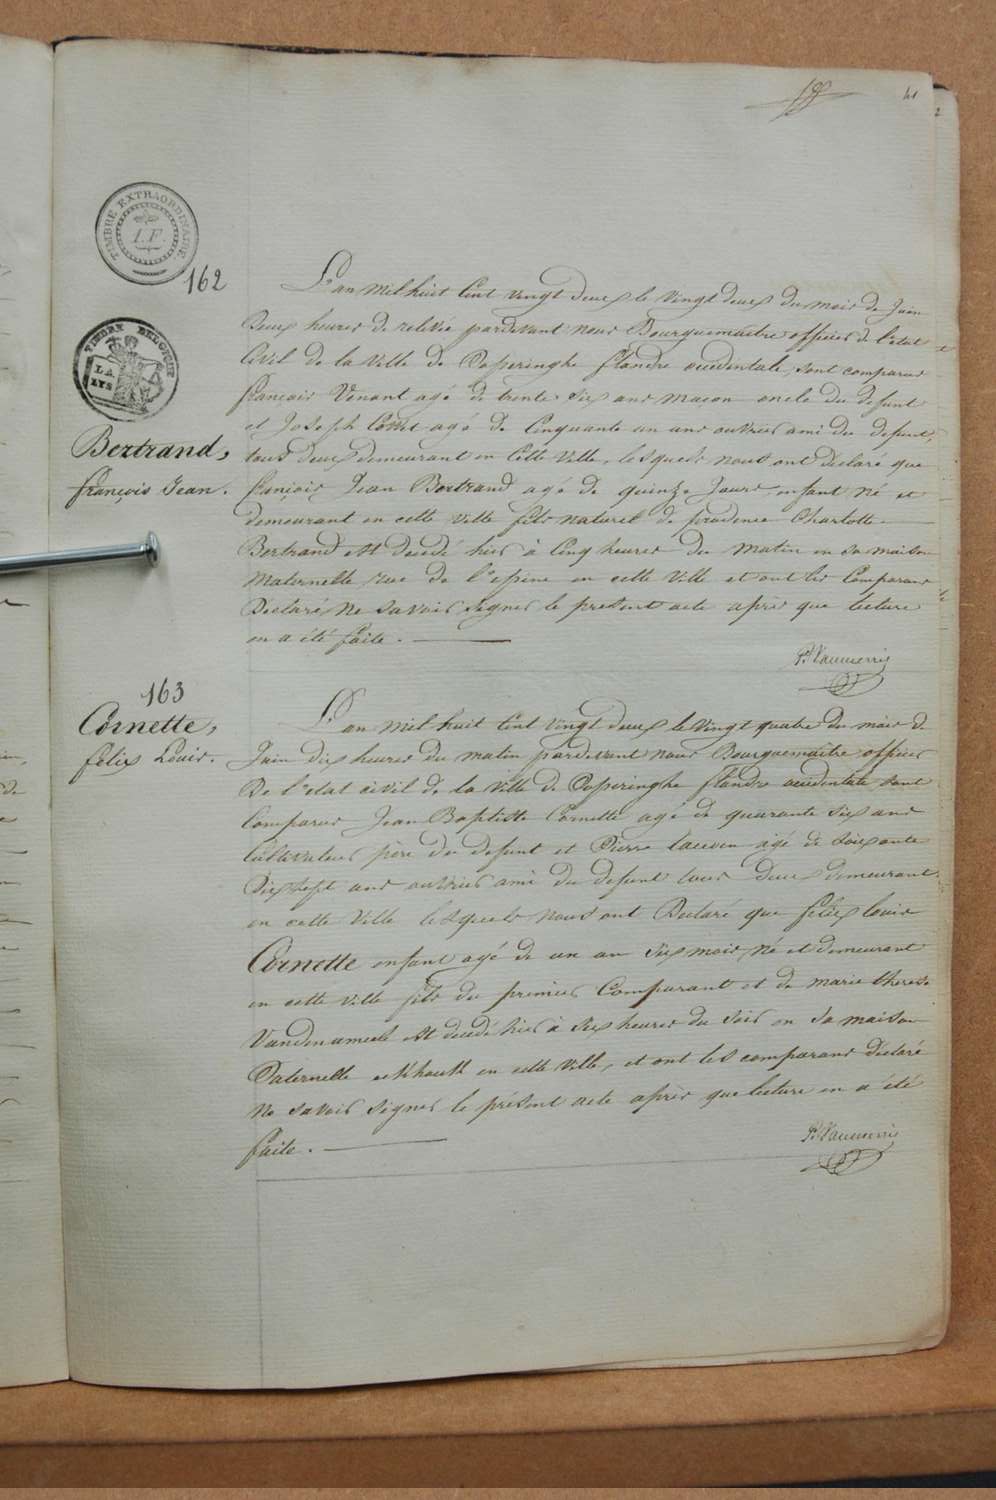 41
TIMBRE EXTRAORDINAIRE
1.F
162
TIMBRE BELGIQUE
LA
LYS
Bertrand,
françois Jean.
L'an mil huit Cent vingt deux le vingt deux du mois de Juin
Deux heures de relevée pardevant nous Bourguemaitre officier de l'etat
Civil de la ville de Poperinghe flandre occidentale, sont comparus
françois Venant agé de trente six ans maçon oncle du defunt
et Joseph Comt agé de Cinquante un ans ouvrier ami du defunt,
tous deux demeurant en Cette Ville, lesquels nous ont déclaré que
françois Jean Bertrand agé de quinze Jours enfant né et
demeurant en cette ville fils naturel de prudence Charlotte
Bertrand est decedé hier à Cinq heures du matin en sa maison
Maternelle rue de l'epine en cette Ville et ont les Comparans
Declaré Ne savoir signer le present acte après que lecture
en a été faite.
163
Cornette,
félix Louis.
L'an mil huit Cent vingt deux le vingt quatre du mois de
Juin dix heures du matin pardevant nous Bourguemaitre officier
De l'etat civil de la ville de Poperinghe flandre occidentale sont
Comparus Jean Baptiste Cornette agé de quarante six ans
Cultivateur père du defunt et Pierre agé de soixante
Dix sept ans ouvrier ami du defunt tous deux demeurant
en cette Ville lesquels nous ont Declaré que félix louis
Cornette enfant agé de un an six mois, né et demeurant
en cette ville fils du premier Comparant et de marie therese
Vandenameele est decedé hier à six heures du soir en sa maison
Paternelle en cette Ville, et ont les comparans déclaré
Ne savoir signer le présent acte après que lecture en a été
faite.